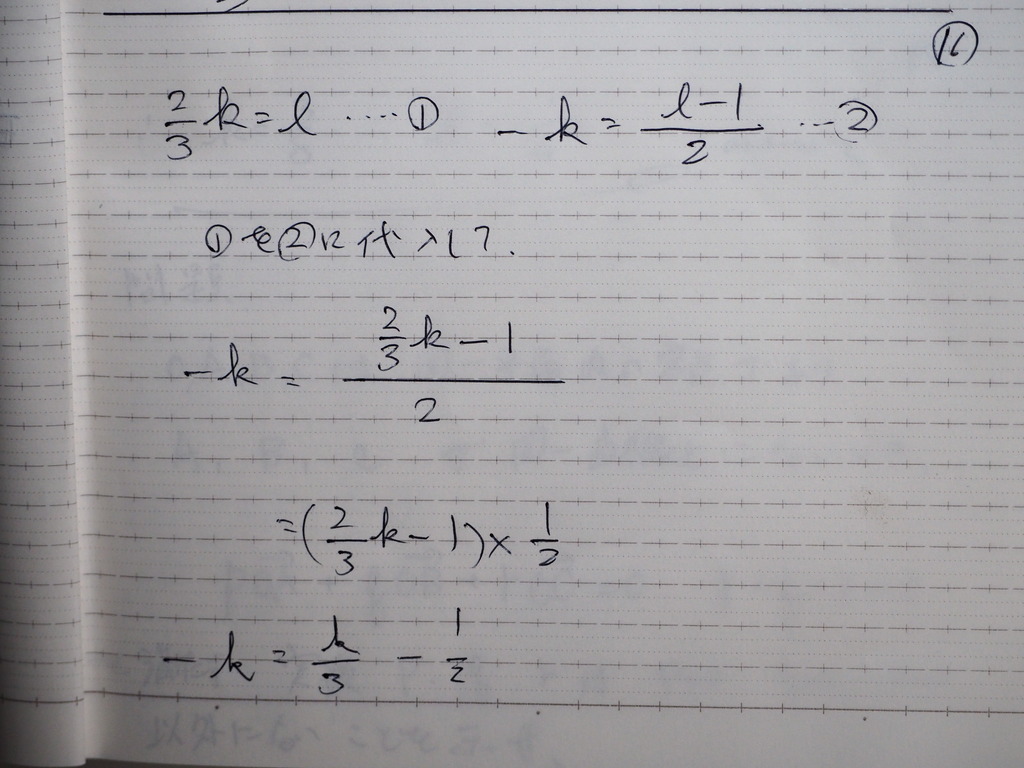 ⑯
2/3 k = l ‥‥① -k = (l-1)/2 ‥②
①を②に代入して.
-k = (2/3 k - 1)/2
= (2/3 k - 1) × 1/2
-k = k/3 - 1/2